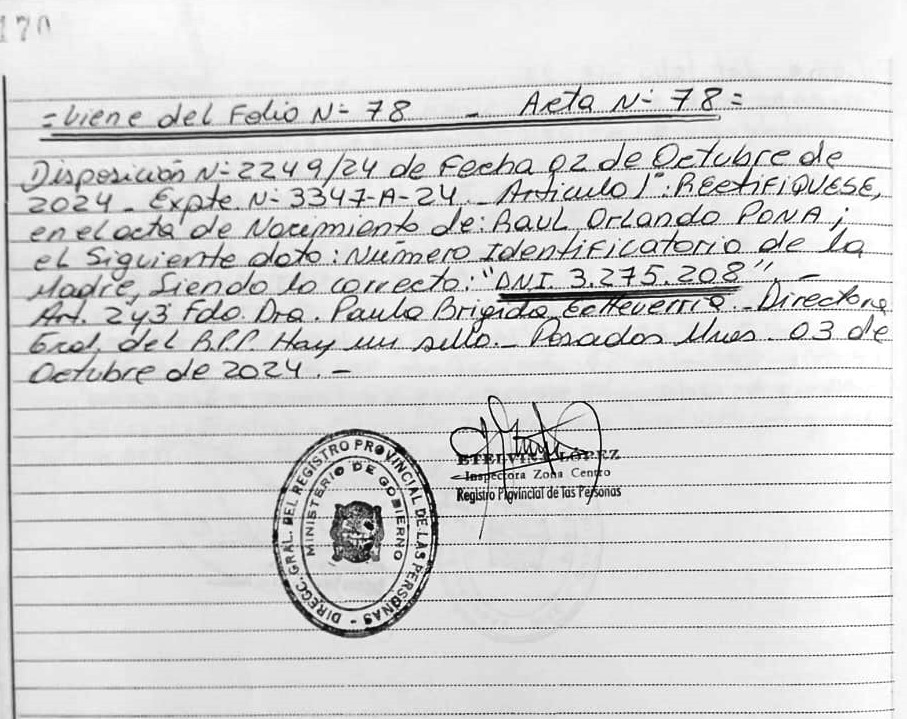 170
=Viene del Folio N- 78 - Acta N- 78=
Disposición N-2249/24 de Fecha 02 de Octubre de
2024 - Expte N- 3347-A-24 - Articulo 1°: REctiFiQUESE,
en el acta de Nacimiento de: RAUL Orlando PONA;
el siguiente dato: Número Identificatorio de la
Madre, siendo lo correcto: "DNI. 3.275.208". -
Art. 243 Fdo. Dra. Paula Brigida Echeverria - Directora
Gral, del R.P.P. Hay un sello. - Posadas Mnes. 03 de
Octubre de 2024. -
ETELVINA LOPEZ
Inspectora Zona Centro
Registro Provincial de las Personas
DIREGC. GRAL. DEL REGISTRO PROVINCIAL DE LAS PERSONAS -
MINISTERIO DE GOBIERNO